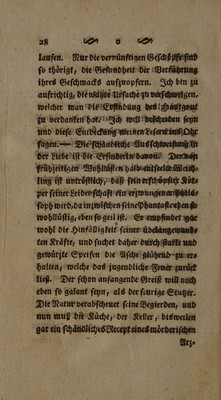 28
laufen. Nur die vernünftigen Geschöpfe sind
so thörigt, die Gesundheit der Verführung
ihres Geschmacks aufzuopfern. Ich bin zu
aufrichtig, die wahre Ursache zu verschweigen,
welcher man die Erfindung des Hautgout
zu verdanken hat. Ich will bescheiden seyn
und diese Entdeckung meinen Lesern ins Ohr
sagen. — Die schändliche Ausschweifung in
der Liebe ist die Erfinderin davon. Der von
frühzeitigen Wohllüsten halb entseelte Weich-
ling ist untröstlich, daß sein erschöpfter Kör-
per seiner Leidenschaft ein erzwungener Philo-
soph wird, da inzwischen seine Phantasie eben so
wohllüstig, eben so geil ist. Er empfindet gar
wohl die Hinfälligkeit seiner übelangewand-
ten Kräfte, und suchet daher durch starke und
gewürzte Speisen die Asche glühend zu er-
halten, welche das jugendliche Feuer zurück
ließ. Der schon anfangende Greiß will noch
eben so galant seyn, als der feurige Stutzer.
Die Natur verabscheuet seine Begierden, und
nun muß die Küche, der Keller, bisweilen
gar ein schändliches Recept eines mörderischen
Arz-